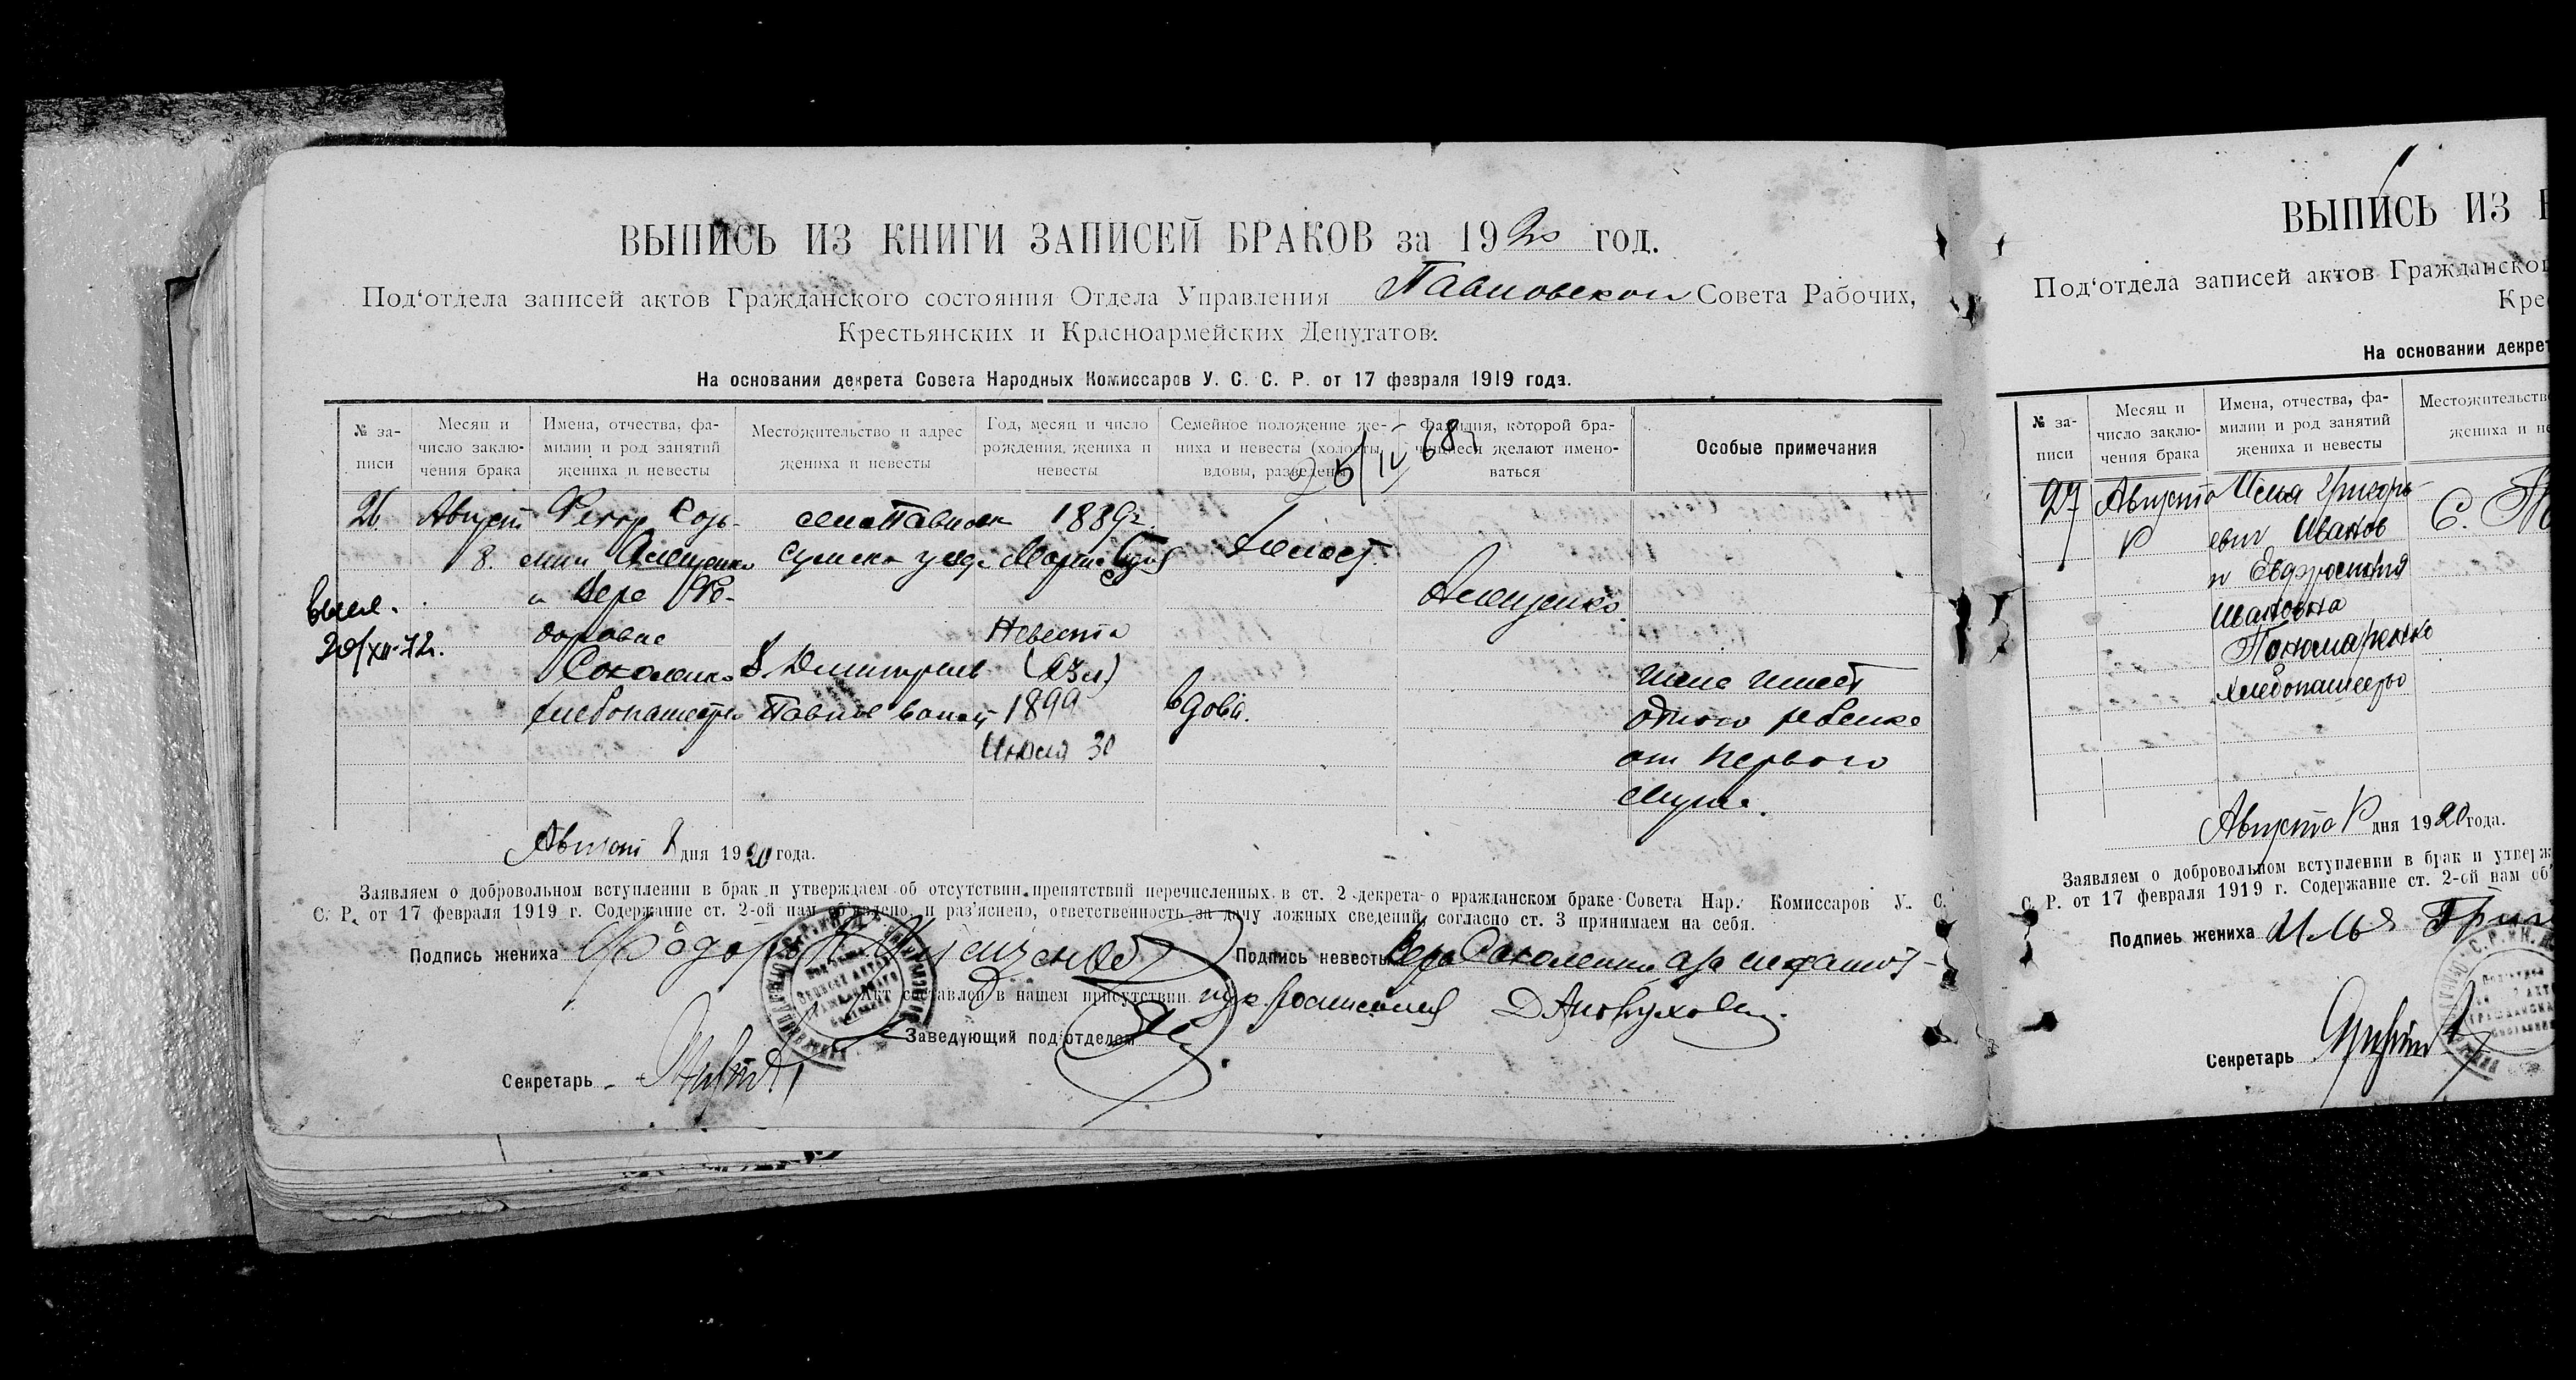 ВЫПИСЬ ИЗ КНИГИ ЗАПИСЕЙ БРАКОВ за 1920 год.
Под‘отдела записей актов Гражданского состояния Отдела Управления Павловской Совета Рабочих,
Крестьянских и Красноармейских Депутатов.
На основании декрета Совета Народных Комиссаров У. С. С. Р. от 17 февраля 1919 года.
№ за-
писи
Месяц и
число заклю-
чения брака
Имена, отчества, фа-
милии и род занятий
жениха и невесты
Местожительство и адрес
жениха и невесты
Год, месяц и число
рождения жениха и
невесты
Семейное положение же-
ниха и невесты (холосты,
вдовы, разведены)
Фамилия, которой бра-
чущиеся желают имено-
ваться
Особые примечания
5/IV 68
26
Август
8.
Козь-
мич Алещенко
и Вера Фе-
доровна
Соколенко
хлебопашество
село Павловк
Сумско уезда
Дмитриев
Павлов волост
1889 г.
Марта
Невеста
1899
Июля 30
Холост.
вдова.
Алещенко
жена имеет
одного ребенка
от первого
мужа.
выд.
20/XII-72.
Август 8 дня 1920 года.
Заявляем о добровольном вступлении в брак и утверждаем об отсутствии препятствий перечисленных в ст. 2 декрета о гражданском браке Совета Нар. Комиссаров У. С.
С. Р. от 17 февраля 1919 г. Содержание ст. 2-ой нам об‘явлено и раз‘яснено, ответственность за дачу ложных сведений, согласно ст. 3 принимаем на себя.
Подпись жениха Фёдор Алещенко Подпись невесты Вера Соколенко а за неграмот-
Акт составлен в нашем присутствии
Заведующий под‘отделом
Секретарь
ВЫПИСЬ ИЗ
Под‘отдела записей актов Гражданског
Кре
На основании декрет
№ за-
писи
Месяц и
число заклю-
чения брака
Имена, отчества, фа-
милии и род занятий
жениха и невесты
Местожительств
жениха и не
27
Августа
8
Илья Григорь-
евич Иванов
и Евдросиния
Ивановна
Пономаренко
хлебопашество
С.
Августа 8 дня 1920 года.
Заявляем о добровольном вступлении в брак и утверж
С. Р. от 17 февраля 1919 г. Содержание ст. 2-ой нам об‘
Подпись жениха Илья Григ
Секретарь